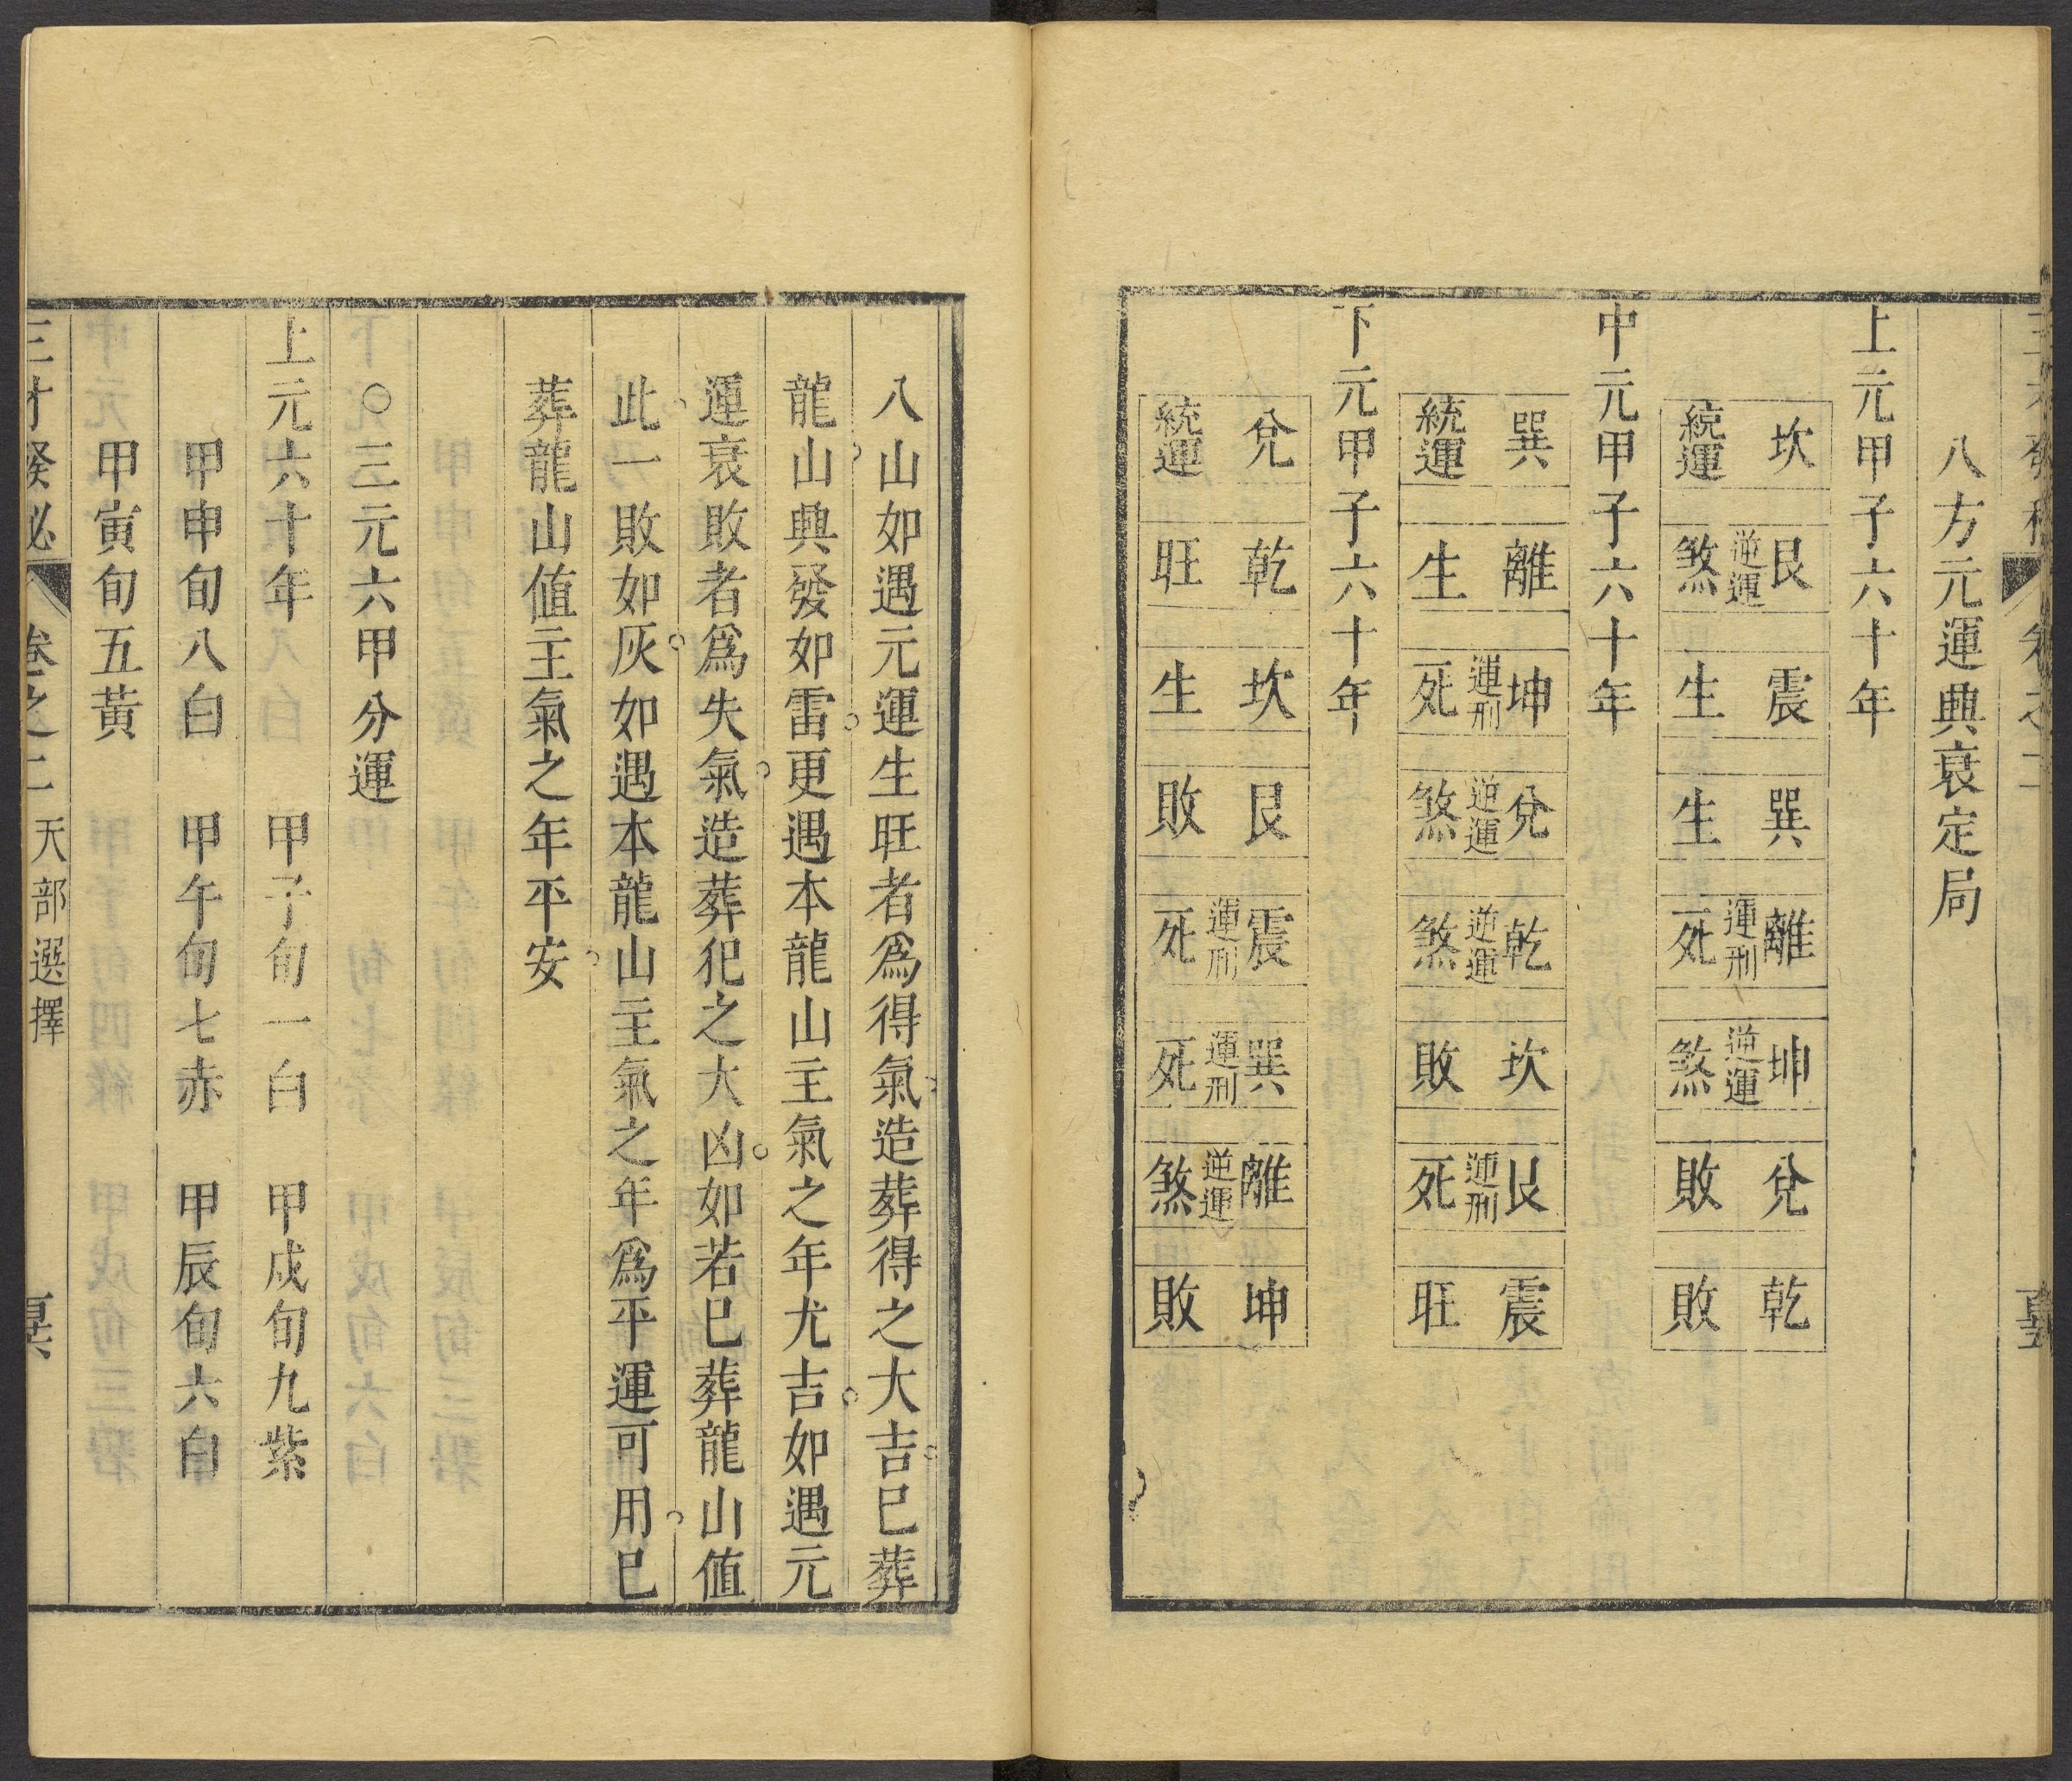 八方元運興衰定局
上元甲子六十年
坎 統運
艮 逆運 煞
震 生
巽 生
離 運刑 死
坤 逆運 煞
兌 敗
乾 敗
中元甲子六十年
巽 統運
離 生
坤 運刑 死
兌 逆運 煞
乾 逆運 煞
坎 敗
艮 運刑 死
震 旺
下元甲子六十年
兌 統運
乾 旺
坎 生
艮 敗
震 運刑 死
巽 運刑 死
離 逆運 煞
坤 敗
八山如遇元運生旺者爲得氣造葬得之大吉已葬
龍山興發如雷更遇本龍山主氣之年尤吉如遇元
運衰敗者爲失氣造葬犯之大凶如若已葬龍山值
此一敗如灰如遇本龍山主氣之年爲平運可用已
葬龍山值主氣之年平安
○三元六甲分運
上元六十年 甲子旬一白 甲戌旬九紫
甲申旬八白 甲午旬七赤 甲辰旬六白
甲寅旬五黃
三才發秘 卷之二 天部選擇